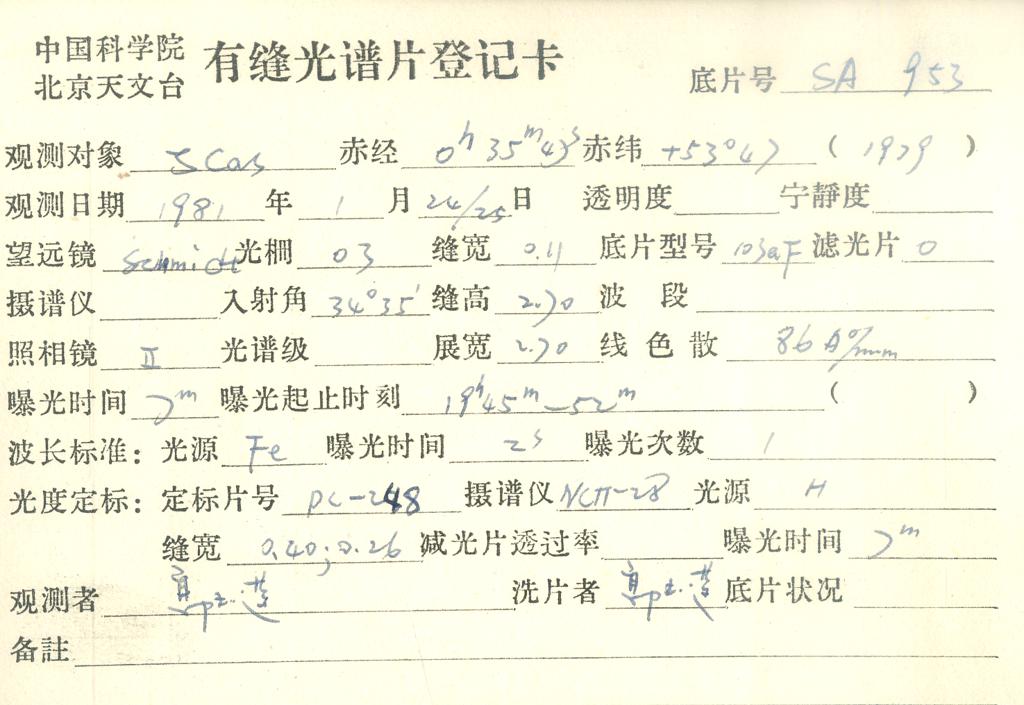 中国科学院
北京天文台
有缝光谱片登记卡
底片号 SA 953
观测对象 SCas 赤经 0h 35m 43s 赤纬 +53°47 ( 1979 )
观测日期 1981 年 1 月 24/25 日 透明度 宁静度
望远镜 Schmidt 光栅 03 缝宽 0.11 底片型号 103aF 滤光片 0
摄谱仪 入射角 34°35′ 缝高 2.70 波段
照相镜 II 光谱级 展宽 2.70 线色散 86 A°/mm
曝光时间 7m 曝光起止时刻 19h45m—52m ( )
波长标准: 光源 Fe 曝光时间 2s 曝光次数 1
光度定标: 定标片号 PC-248 摄谱仪 光源 H
缝宽 0.40; 0.26 减光片透过率 曝光时间 7m
观测者 洗片者 底片状况
备註